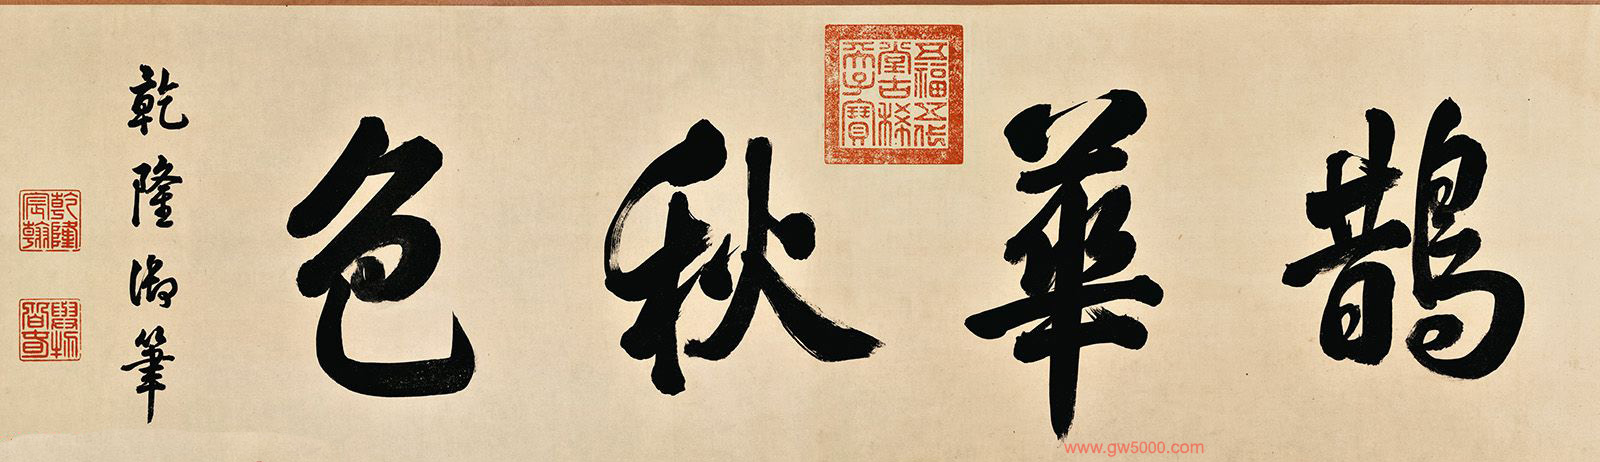 鵲華秋色
五福五代
堂古稀
天子寶
乾隆御筆
乾隆
宸翰
www.gw5000.com